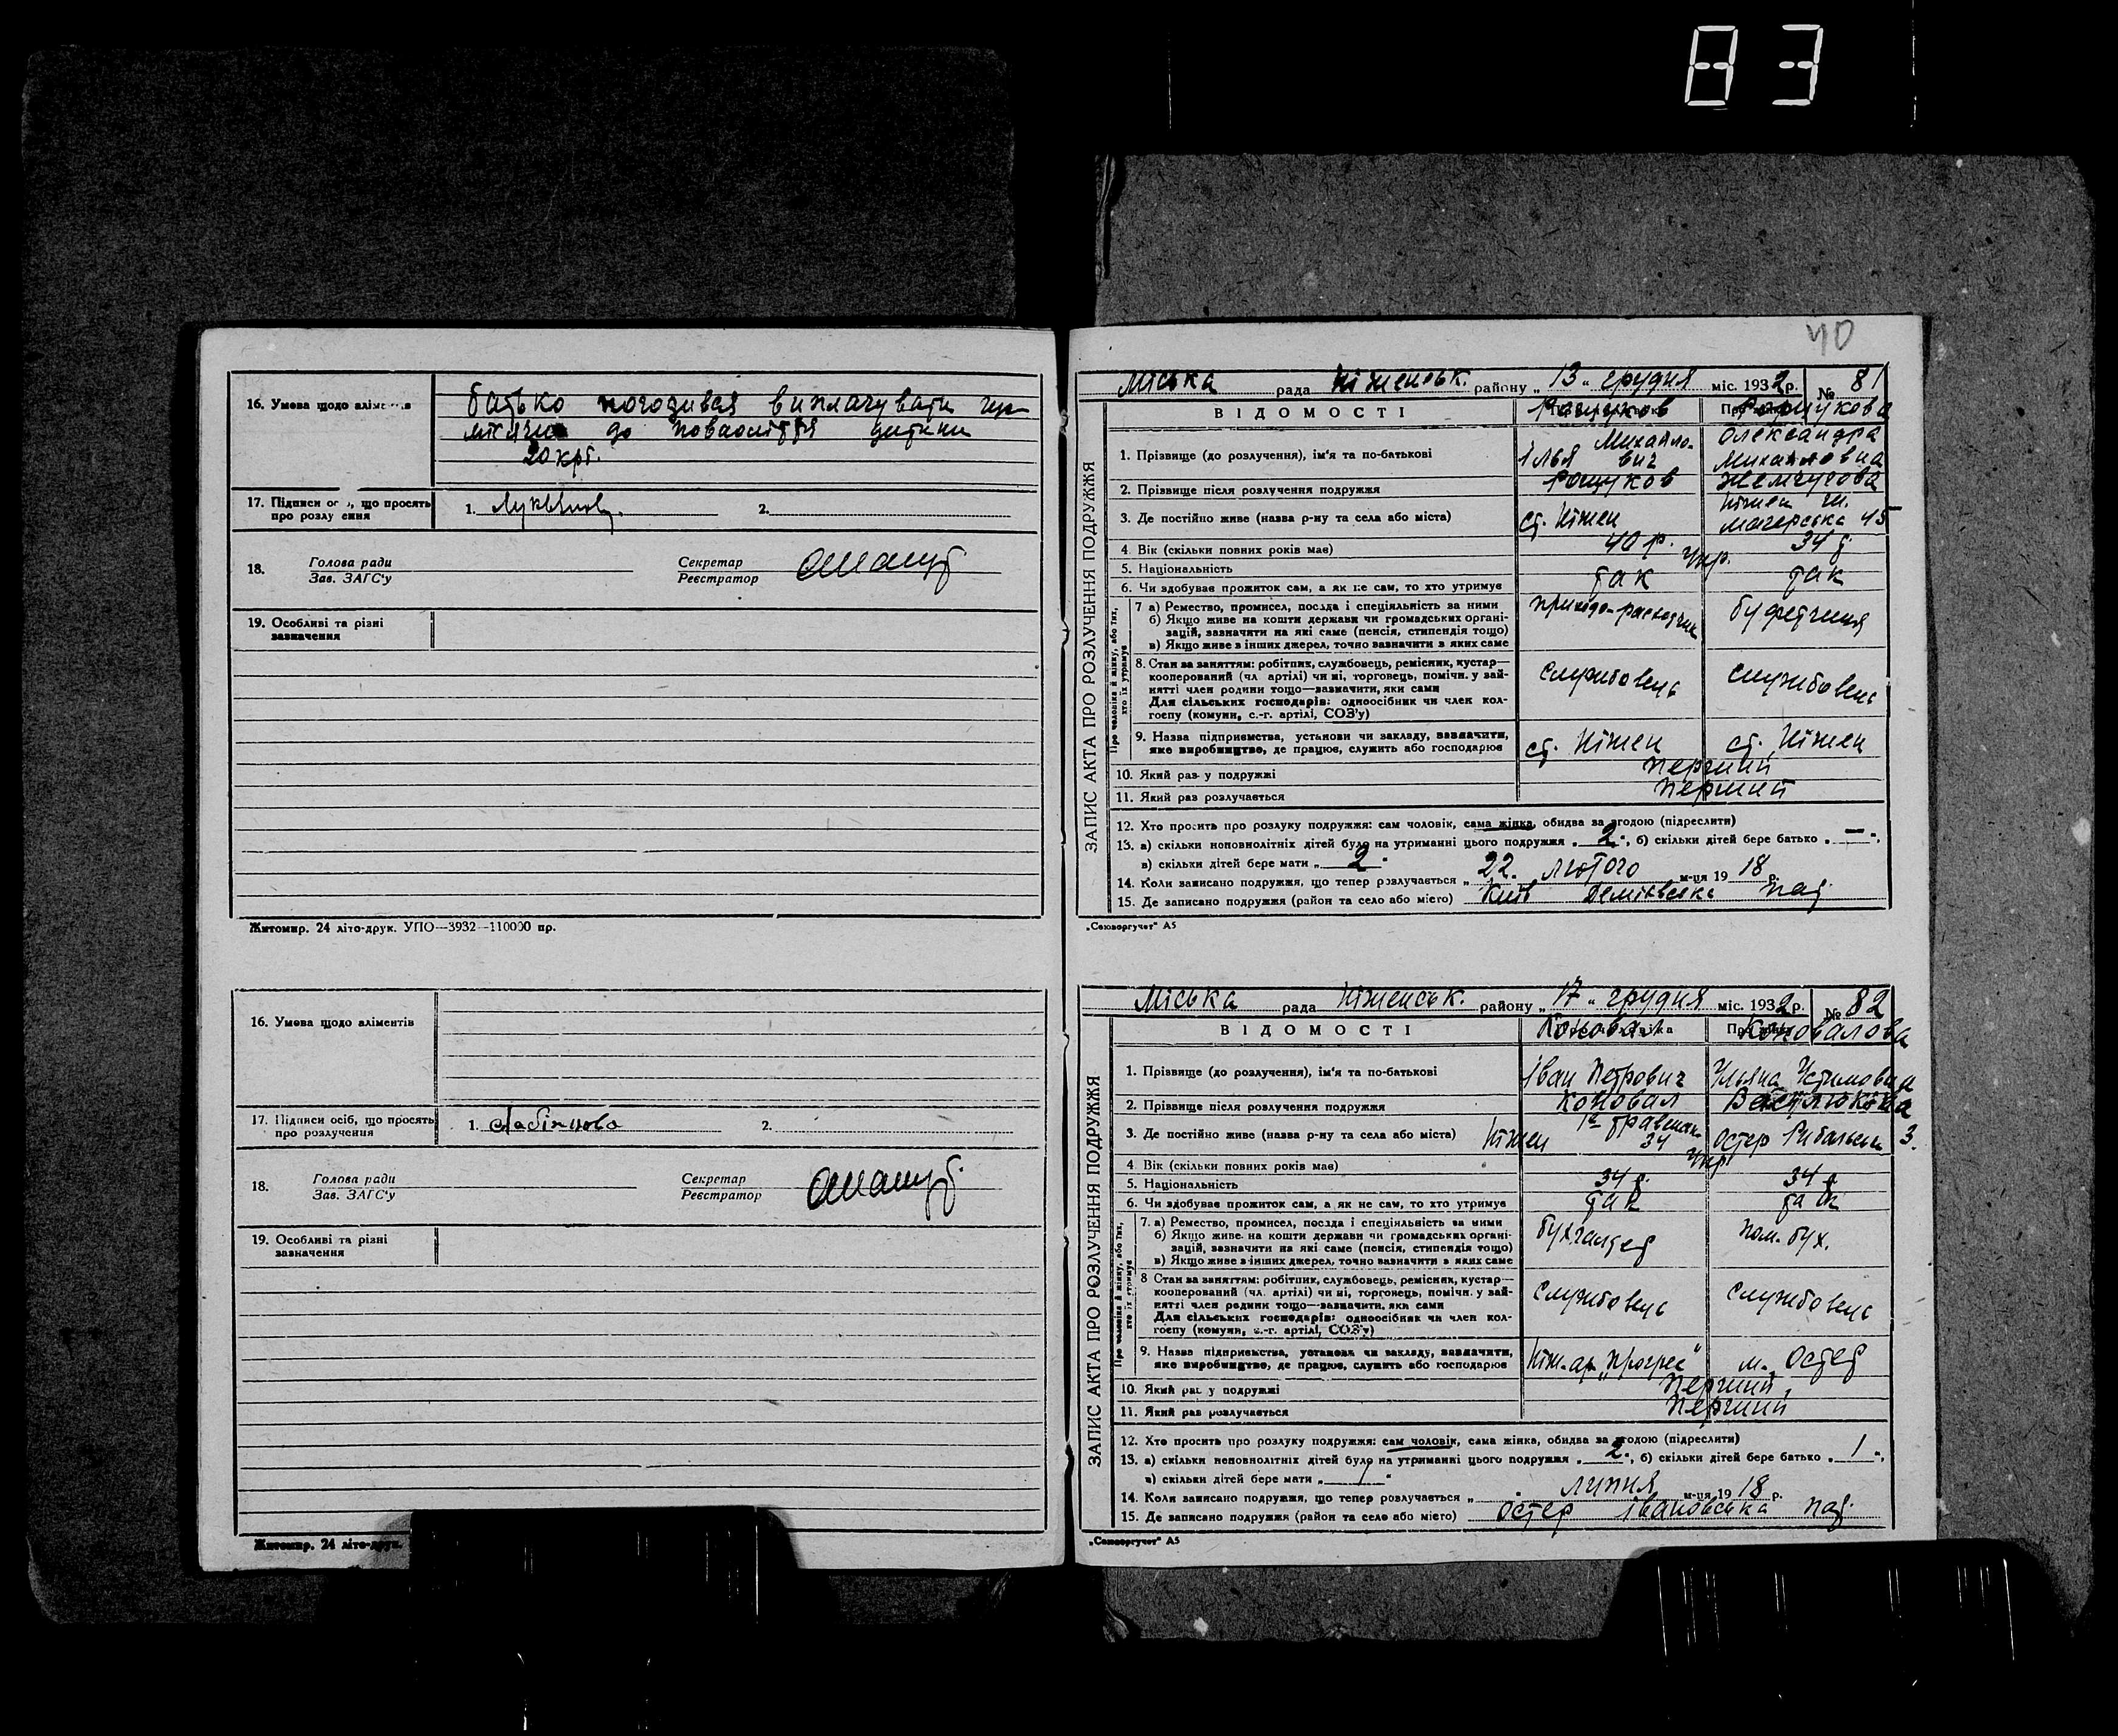 83
16. Умова щодо аліментів
батько погодився виплачувати що
місячно до повноліття дитини
20 крб.
17. Підписи осіб, що просять
про розлучення
1. 2.
18. Голова ради
Зав. ЗАГС'у
Секретар
Реєстратор
19. Особливі та різні
зазначення
Житомир. 24 літо-друк. УПО—3932—110000 пр.
16. Умова щодо аліментів
17. Підписи осіб, що просять
про розлучення
1. 2.
18. Голова ради
Зав. ЗАГС'у
Секретар
Реєстратор
19. Особливі та різні
зазначення
Житомир. 24 літо-друк.
40
ЗАПИС АКТА ПРО РОЗЛУЧЕННЯ ПОДРУЖЖЯ
Міська рада Ніженськ. району „13" грудня міс. 1932 р. № 81
ВІДОМОСТІ
1. Прізвище (до розлучення), ім'я та по-батькові Ілья Михайлович Олександра Михайловна
2. Прізвище після розлучення подружжя
3. Де постійно живе (назва р-ну та села або міста) ст. Ніжен Ніжен 45
4. Вік (скільки повних років має) 40 р. 34 р.
5. Національність Укр.
6. Чи здобуває прожиток сам, а як не сам, то хто утримує так так
Про чоловіка й жінку, або тих,
хто їх утримує
7 а) Ремество, промисел, посада і спеціяльність за ними
б) Якщо живе на кошти держави чи громадських органі-
зацій, зазначити на які саме (пенсія, стипендія тощо)
в) Якщо живе з інших джерел, точно зазначити з яких саме
буфетчиця
8. Стан за заняттям: робітник, службовець, ремісник, кустар—
кооперований (чл. артілі) чи ні, торговець, помічн. у зай-
нятті член родини тощо—зазначити, яки сами
Для сільських господарів: одноосібник чи член кол-
госпу (комуни, с.-г. артілі, СОЗ'у)
службовець службовець
9. Назва підприємства, установи чи закладу, зазначити,
яке виробництво, де працює, служить або господарює
ст. Ніжен ст. Ніжен
10. Який раз у подружжі перший
11. Який раз розлучається перший
12. Хто просить про розлуку подружжя: сам чоловік, сама жінка, обидва за згодою (підреслити)
13. а) скільки неповнолітніх дітей було на утриманні цього подружжя „2", б) скільки дітей бере батько „—",
в) скільки дітей бере мати „2"
14. Коли записано подружжя, що тепер розлучається „22. лютого м-ця 1918 р.
15. Де записано подружжя (район та село або місто) Київ Деміївська
„Союзоргучет" А5
ЗАПИС АКТА ПРО РОЗЛУЧЕННЯ ПОДРУЖЖЯ
Міська рада Ніженськ. району „17" грудня міс. 1932 р. № 82
ВІДОМОСТІ Коновал Коновалова
1. Прізвище (до розлучення), ім'я та по-батькові Іван Петрович Ульяна Устимовна
2. Прізвище після розлучення подружжя Коновал
3. Де постійно живе (назва р-ну та села або міста) Ніжен 34 Остер 3.
4. Вік (скільки повних років має) Укр.
5. Національність 34 р. 34 р.
6. Чи здобуває прожиток сам, а як не сам, то хто утримує так так
Про чоловіка й жінку, або тих,
хто їх утримує
7. а) Ремество, промисел, посада і спеціяльність за ними
б) Якщо живе на кошти держави чи громадських органі-
зацій, зазначити на які саме (пенсія, стипендія тощо)
в) Якщо живе з інших джерел, точно зазначити з яких саме
бухгалтер пом. бух.
8 Стан за заняттям: робітник, службовець, ремісник, кустар—
кооперований (чл. артілі) чи ні, торговець, помічн. у зай-
нятті член родини тощо—зазначити, яки сами
Для сільських господарів: одноосібник чи член кол-
госпу (комуни, с.-г. артілі, СОЗ'у)
службовець службовець
9. Назва підприємства, установи чи закладу, зазначити,
яке виробництво, де працює, служить або господарює
Ніж. ар. „Прогрес" м. Остер
10. Який раз у подружжі перший
11. Який раз розлучається перший
12. Хто просить про розлуку подружжя: сам чоловік, сама жінка, обидва за згодою (підреслити)
13. а) скільки неповнолітніх дітей було на утриманні цього подружжя „2", б) скільки дітей бере батько „1",
в) скільки дітей бере мати „1"
14. Коли записано подружжя, що тепер розлучається „ липня м-ця 1918 р.
15. Де записано подружжя (район та село або місто) Остер Івановська
„Союзоргучет" А5